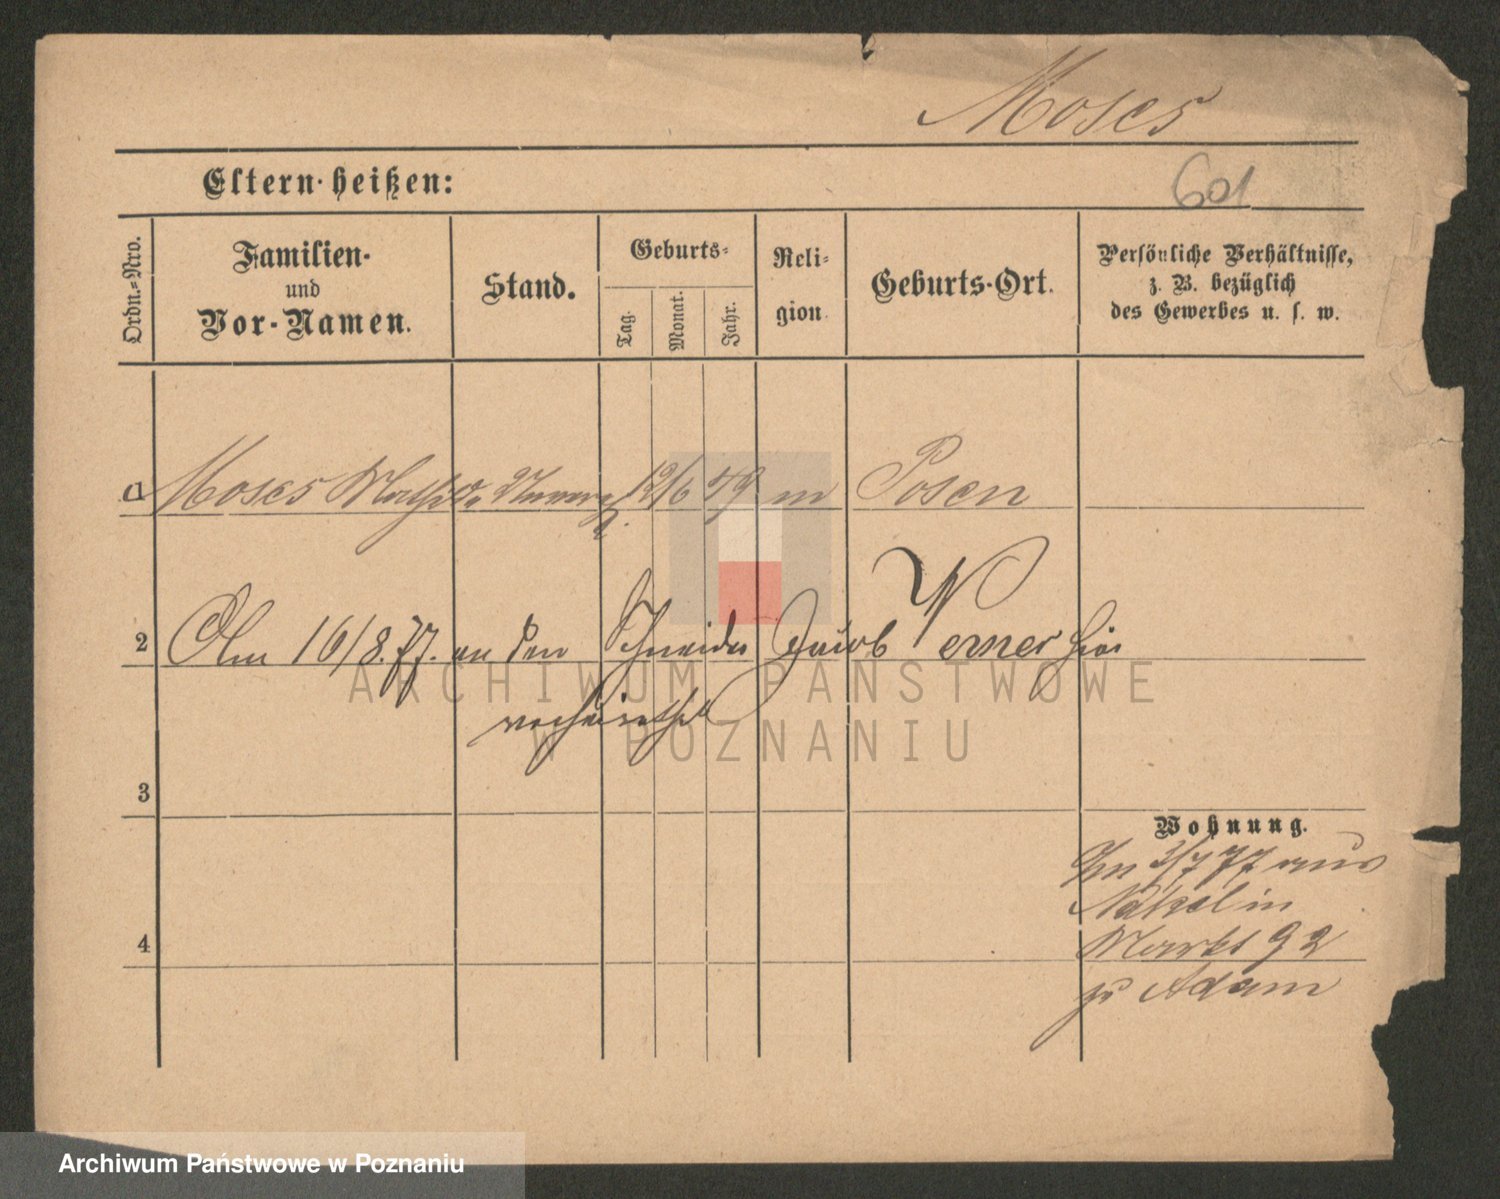 Moses
Eltern heißen:
601
Ordn.-Nro.
Familien-
und
Vor-Namen.
Stand.
Geburts-
Tag.
Monat.
Jahr.
Reli-
gion
Geburts-Ort.
Persönliche Verhältnisse,
z. B. bezüglich
des Gewerbes u. s. w.
Moses 12/6 59 m Posen
2 Am 16/8.77. an den Schneider Jacob Werner hier
verheirathet
3
Wohnung.
3/7 77 aus
Nakel in
4 Markt 92
zu Adam
ARCHIWUM PAŃSTWOWE
W POZNANIU
Archiwum Państwowe w Poznaniu